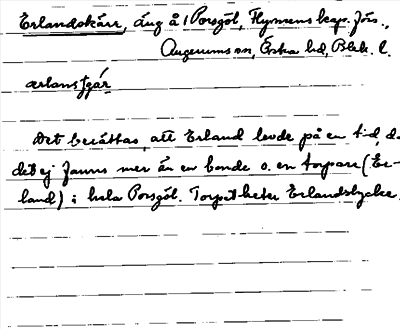 Erlandskärr, äng å 1 Porsgöl, Flymens kap. förs.,
Augerums sn, Östra hd, Blek. l.
ærlanstʃær
Det berättas, att Erland levde på en tid, då
det ej fanns mer än en bonde o. en torpare (Er-
land) i hela Porsgöl. Torpet heter Erlandslycke.